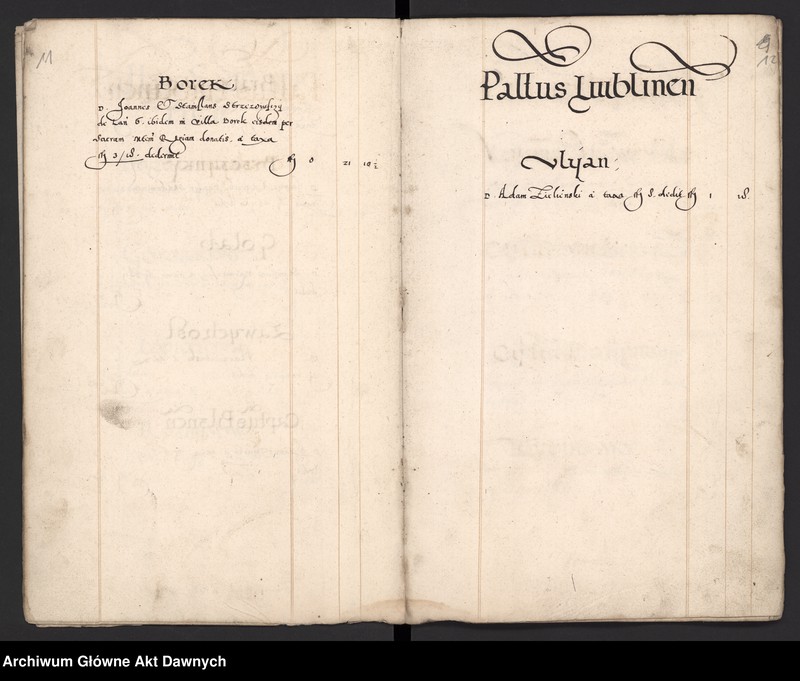 11
Borek
D. Joannes et Stanislaus Strzezowsczÿ
de Lan 6. ibidem in villa Borek eisdem per
sacram Mtem Regiam donatis. a taxa
fl 3/18. dederunt fl 0 21 18 1/2
12
Pallus Lŭublinen
Vlÿan
D. Adam Zieliński a taxa fl 8. dedit fl 1 18.
Archiwum Główne Akt Dawnych